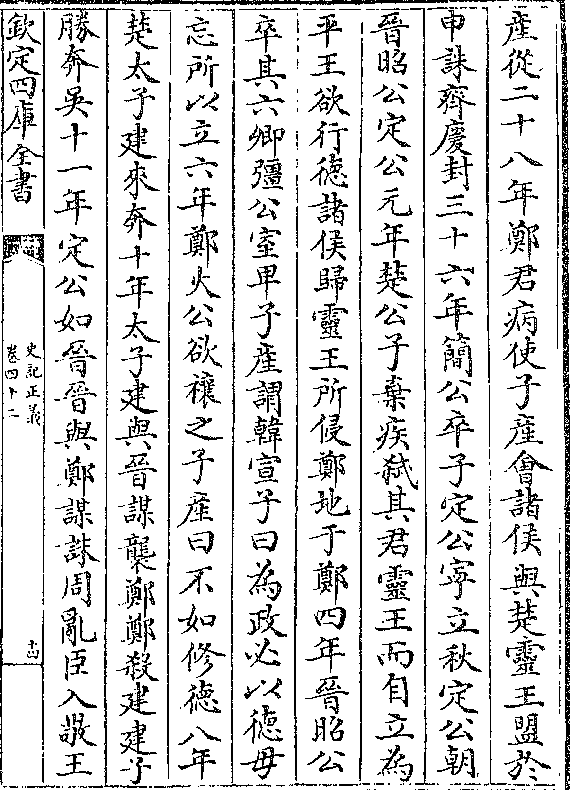 産從二十八年鄭君病使子産會諸侯與楚靈王盟於
申誅齊慶封三十六年簡公卒子定公寧立秋定公朝
晉昭公定公元年楚公子棄疾弑其君靈王而自立為
平王欲行徳諸侯歸靈王所侵鄭地于鄭四年晉昭公
卒其六卿彊公室卑子産謂韓宣子曰為政必以徳毋
忘所以立六年鄭火公欲禳之子産曰不如修徳八年
楚太子建來奔十年太子建與晉謀襲鄭鄭殺建建子
勝奔吳十一年定公如晉晉與鄭謀誅周亂臣入敬王
欽定四庫全書
史記正義
卷四十二
十四